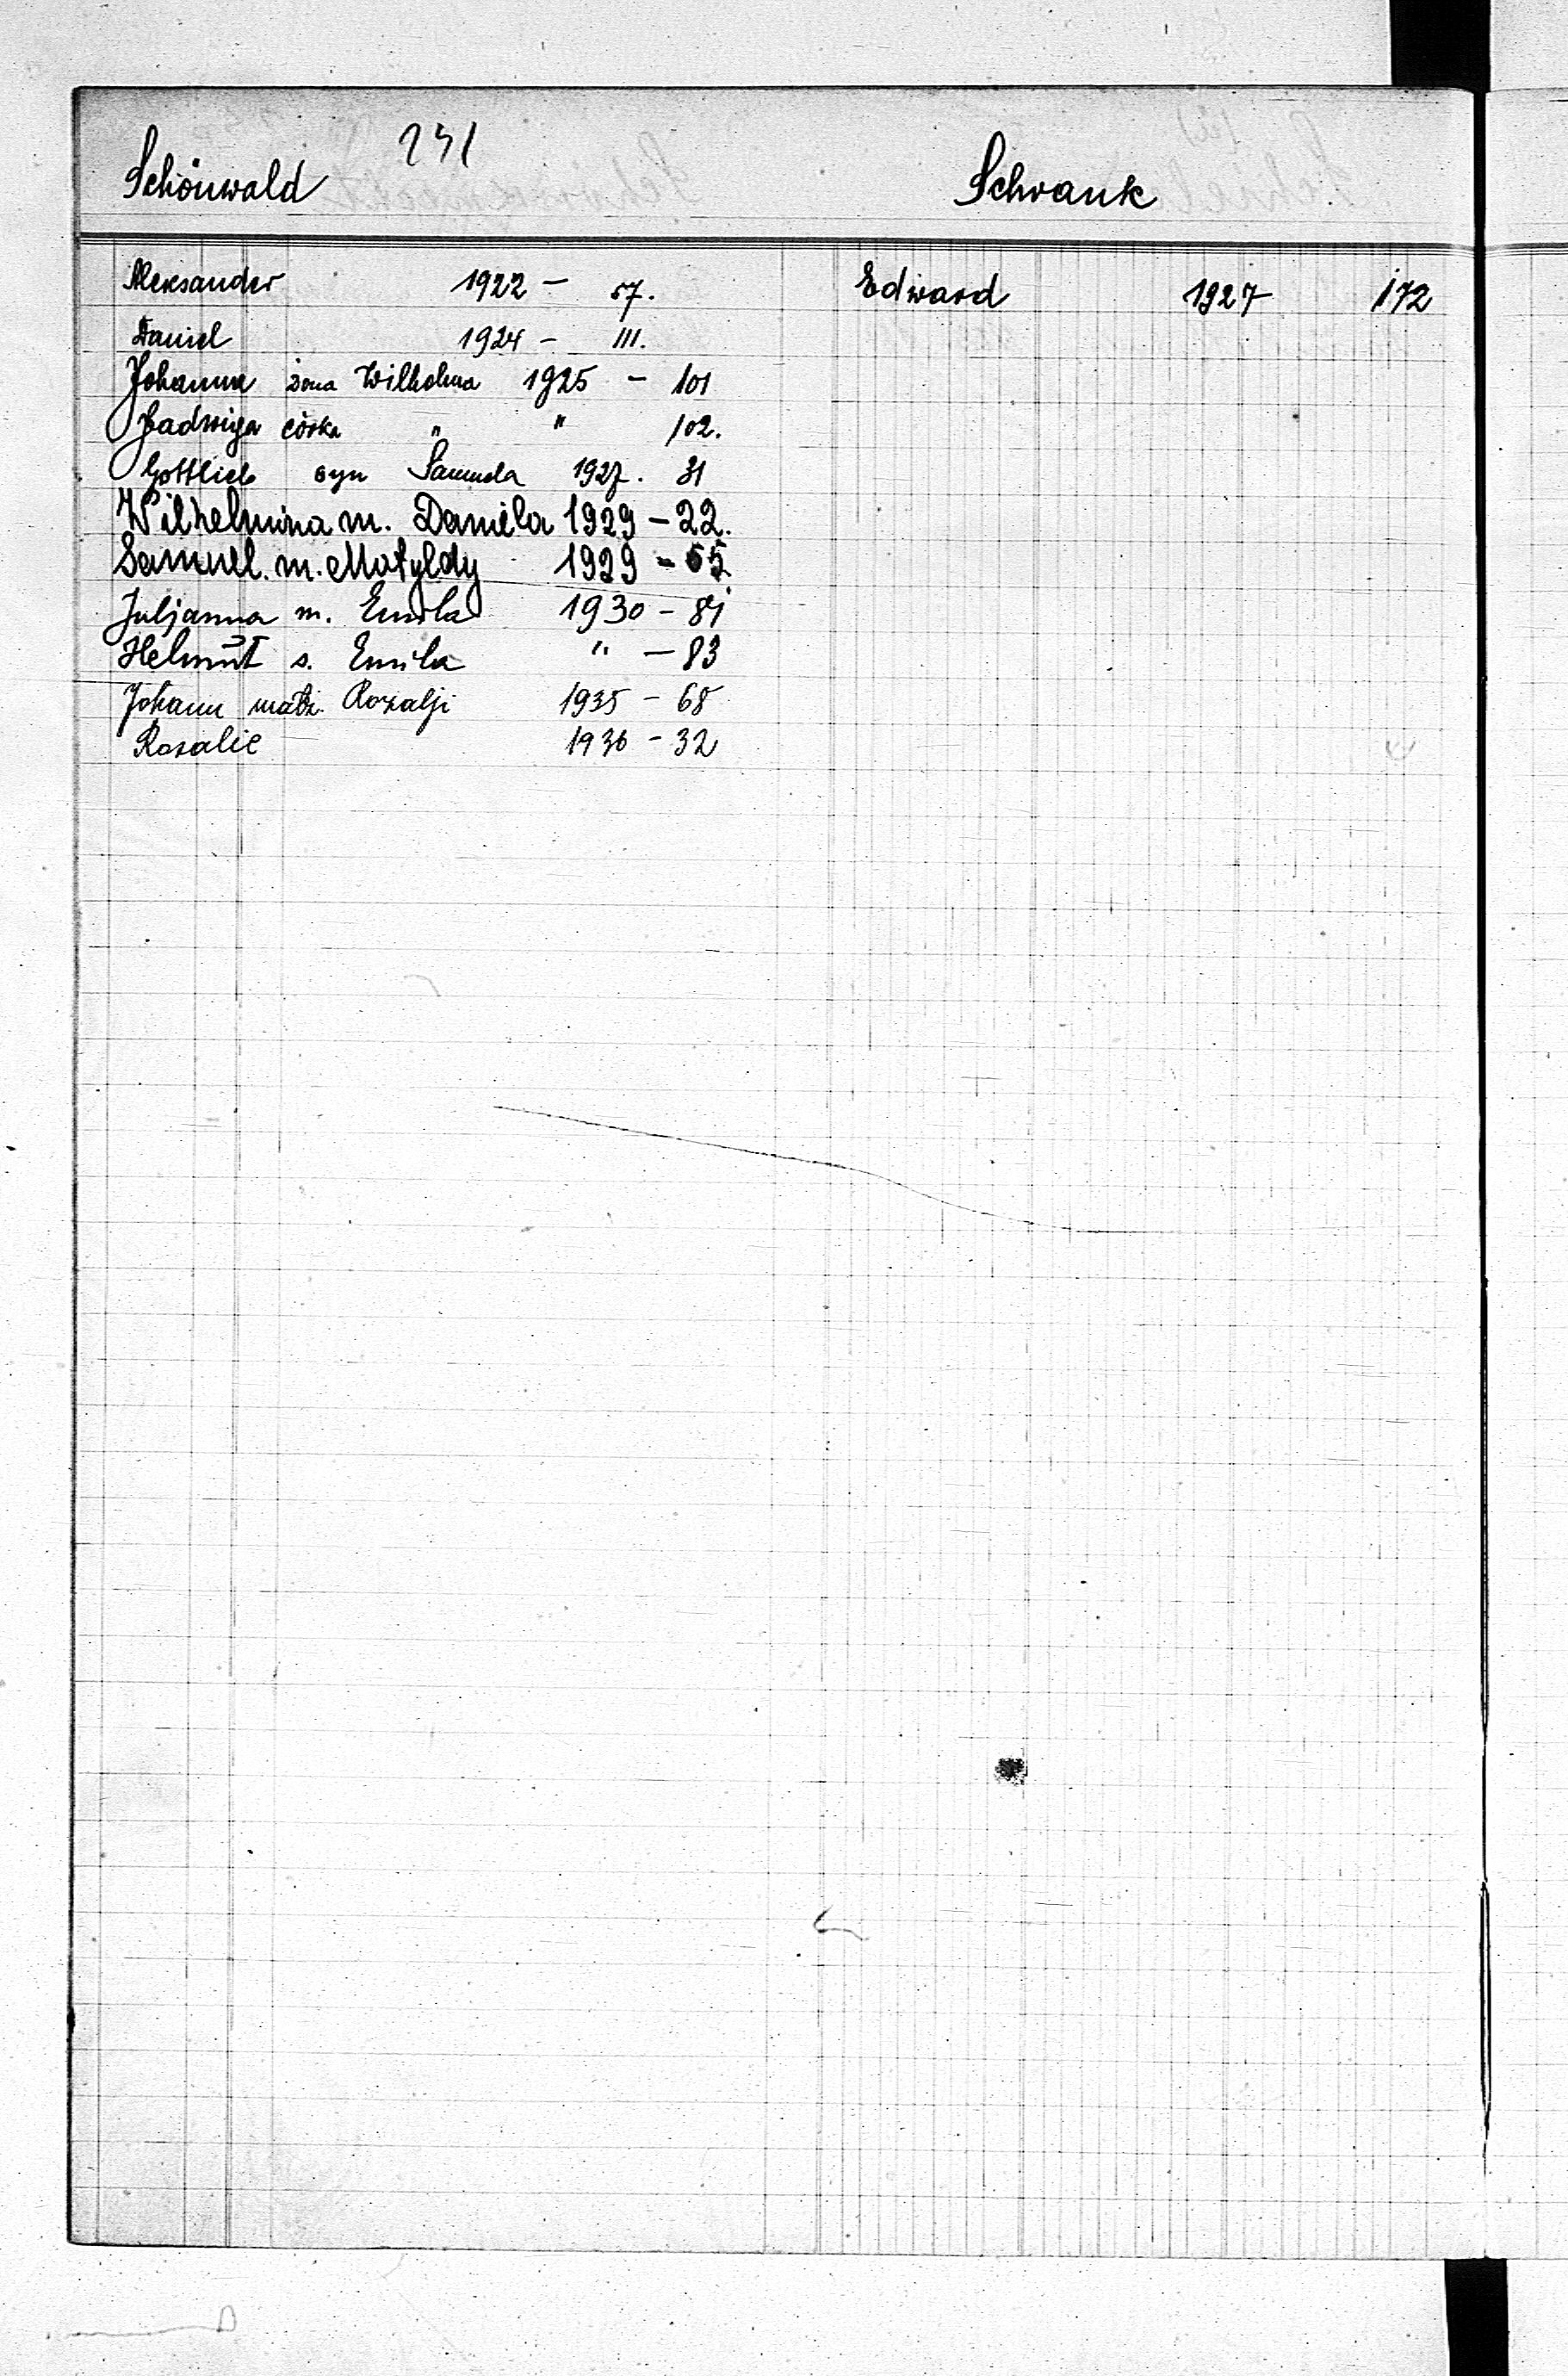 241
Schönwald
Aleksander 1922 - 57.
Daniel 1924 - 111.
Johanna żona Wilhelma 1925 - 101
Jadwiga córka " " 102.
Gottlieb syn Samuela 1927. 31
Wilhelmina m. Daniela 1929 - 22.
Samuel. m. Matyldy 1929 - 65
Juljanna m. Emila 1930 - 81
Helmut s. Emila " - 83
Johann małż. Rozalji 1935 - 68
Rosalie 1936 - 32
Schrank
Edward 1927 172